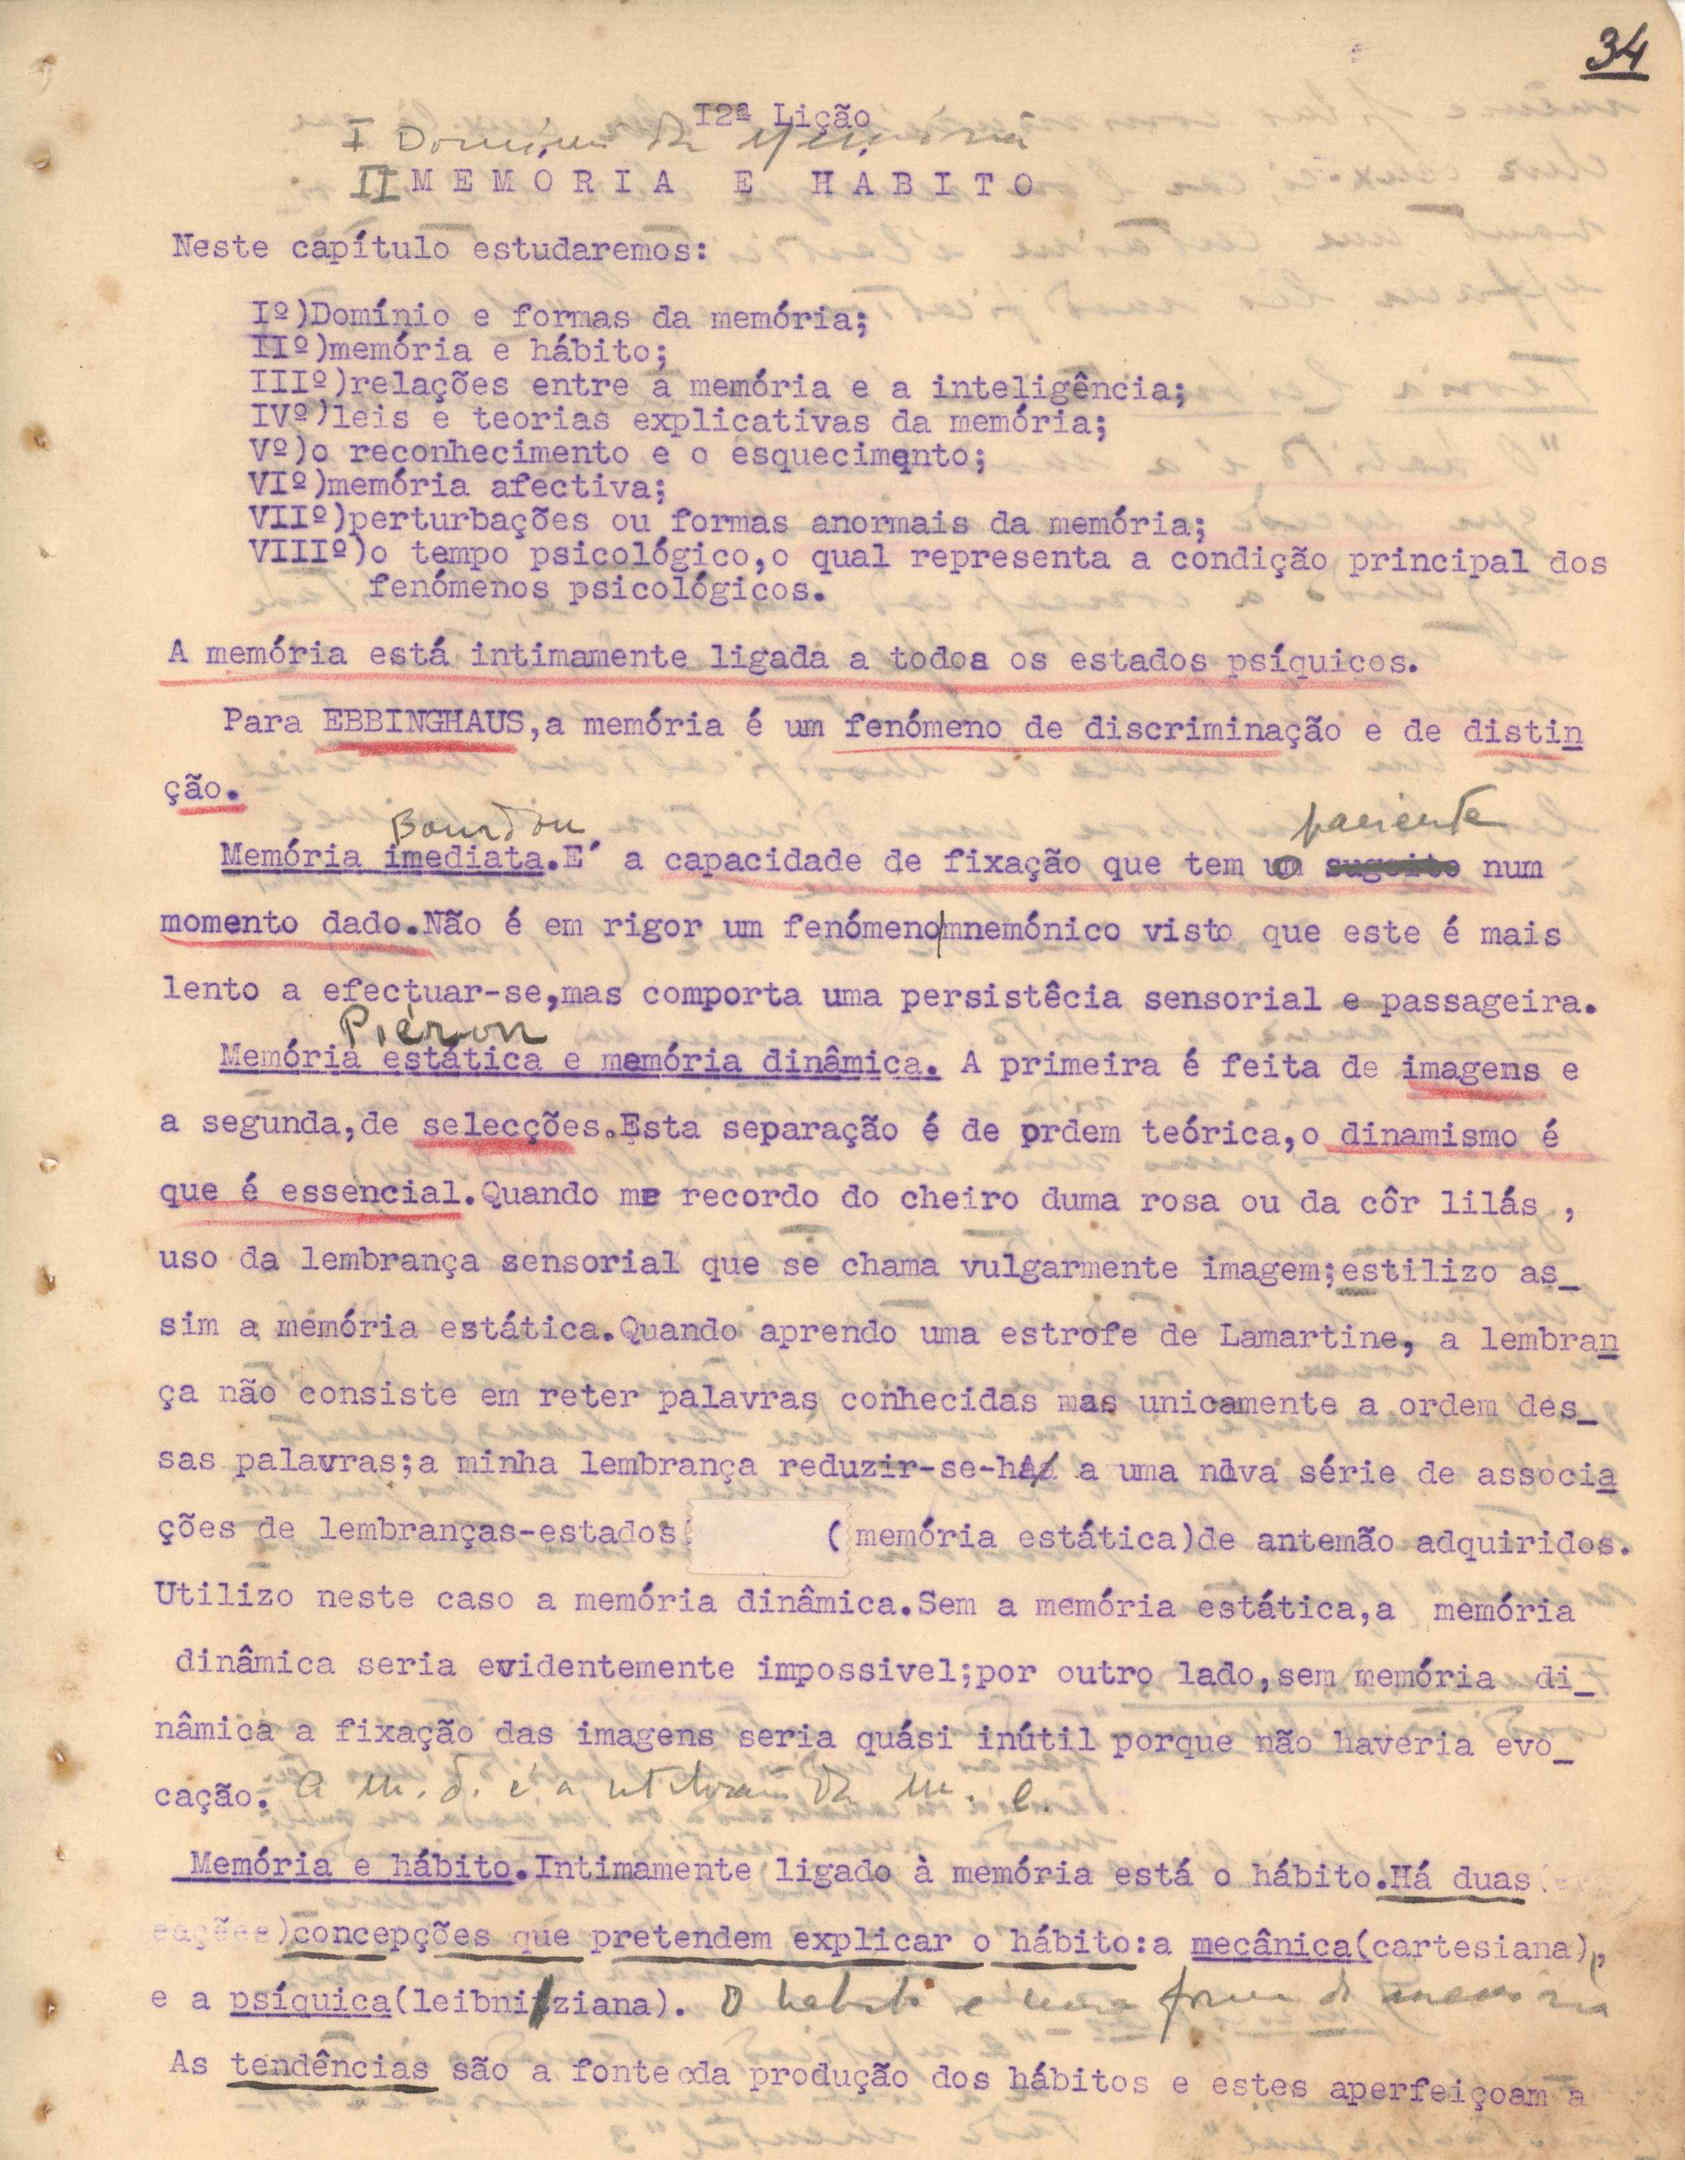 34
I2ª Lição
I Domínio da Memória
II MEMÓRIA E HÁBITO
Neste capítulo estudaremos:
Iº)Domínio e formas da memória;
IIº)memória e hábito;
IIIº)relações entre a memória e a inteligência;
IVº)leis e teorias explicativas da memória;
Vº)o reconhecimento e o esquecimento;
VIº)memória afectiva;
VIIº)perturbações ou formas anormais da memória;
VIIIº)o tempo psicológico,o qual representa a condição principal dos
fenómenos psicológicos.
A memória está intimamente ligada a todos os estados psíquicos.
Para EBBINGHAUS,a memória é um fenómeno de discriminação e de distin
ção.
Bourdon paciente
Memória imediata.E´ a capacidade de fixação que tem o sugeito num
momento dado.Não é em rigor um fenómeno|mnemónico visto que este é mais
lento a efectuar-se,mas comporta uma persistêcia sensorial e passageira.
Piéron
Memória estática e memória dinâmica. A primeira é feita de imagens e
a segunda,de selecções.Esta separação é de ordem teórica,o dinamismo é
que é essencial.Quando me recordo do cheiro duma rosa ou da côr lilás ,
uso da lembrança sensorial que se chama vulgarmente imagem;estilizo as_
sim a memória estática.Quando aprendo uma estrofe de Lamartine, a lembran
ça não consiste em reter palavras conhecidas mas unicamente a ordem des_
sas palavras;a minha lembrança reduzir-se-há a uma nova série de associa
ções de lembranças-estados (memória estática)de antemão adquiridos.
Utilizo neste caso a memória dinâmica.Sem a memória estática,a memória
dinâmica seria evidentemente impossivel;por outro lado,sem memória di_
nâmica a fixação das imagens seria quási inútil porque não haveria evo_
cação. A m. d. é a utilização da m. e.
Memória e hábito.Intimamente ligado à memória está o hábito.Há duas(
)concepções que pretendem explicar o hábito:a mecânica(cartesiana),
e a psíquica(leibnitziana). O hábito é uma forma de memória
As tendências são a fonte da produção dos hábitos e estes aperfeiçoam a